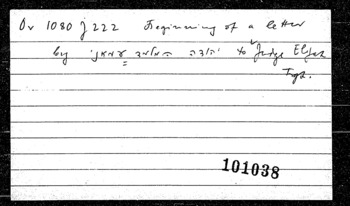 Or 1080 J 222 Beginning of a letter
by יהודה המלמד עמאני to Judge Elijah
101038